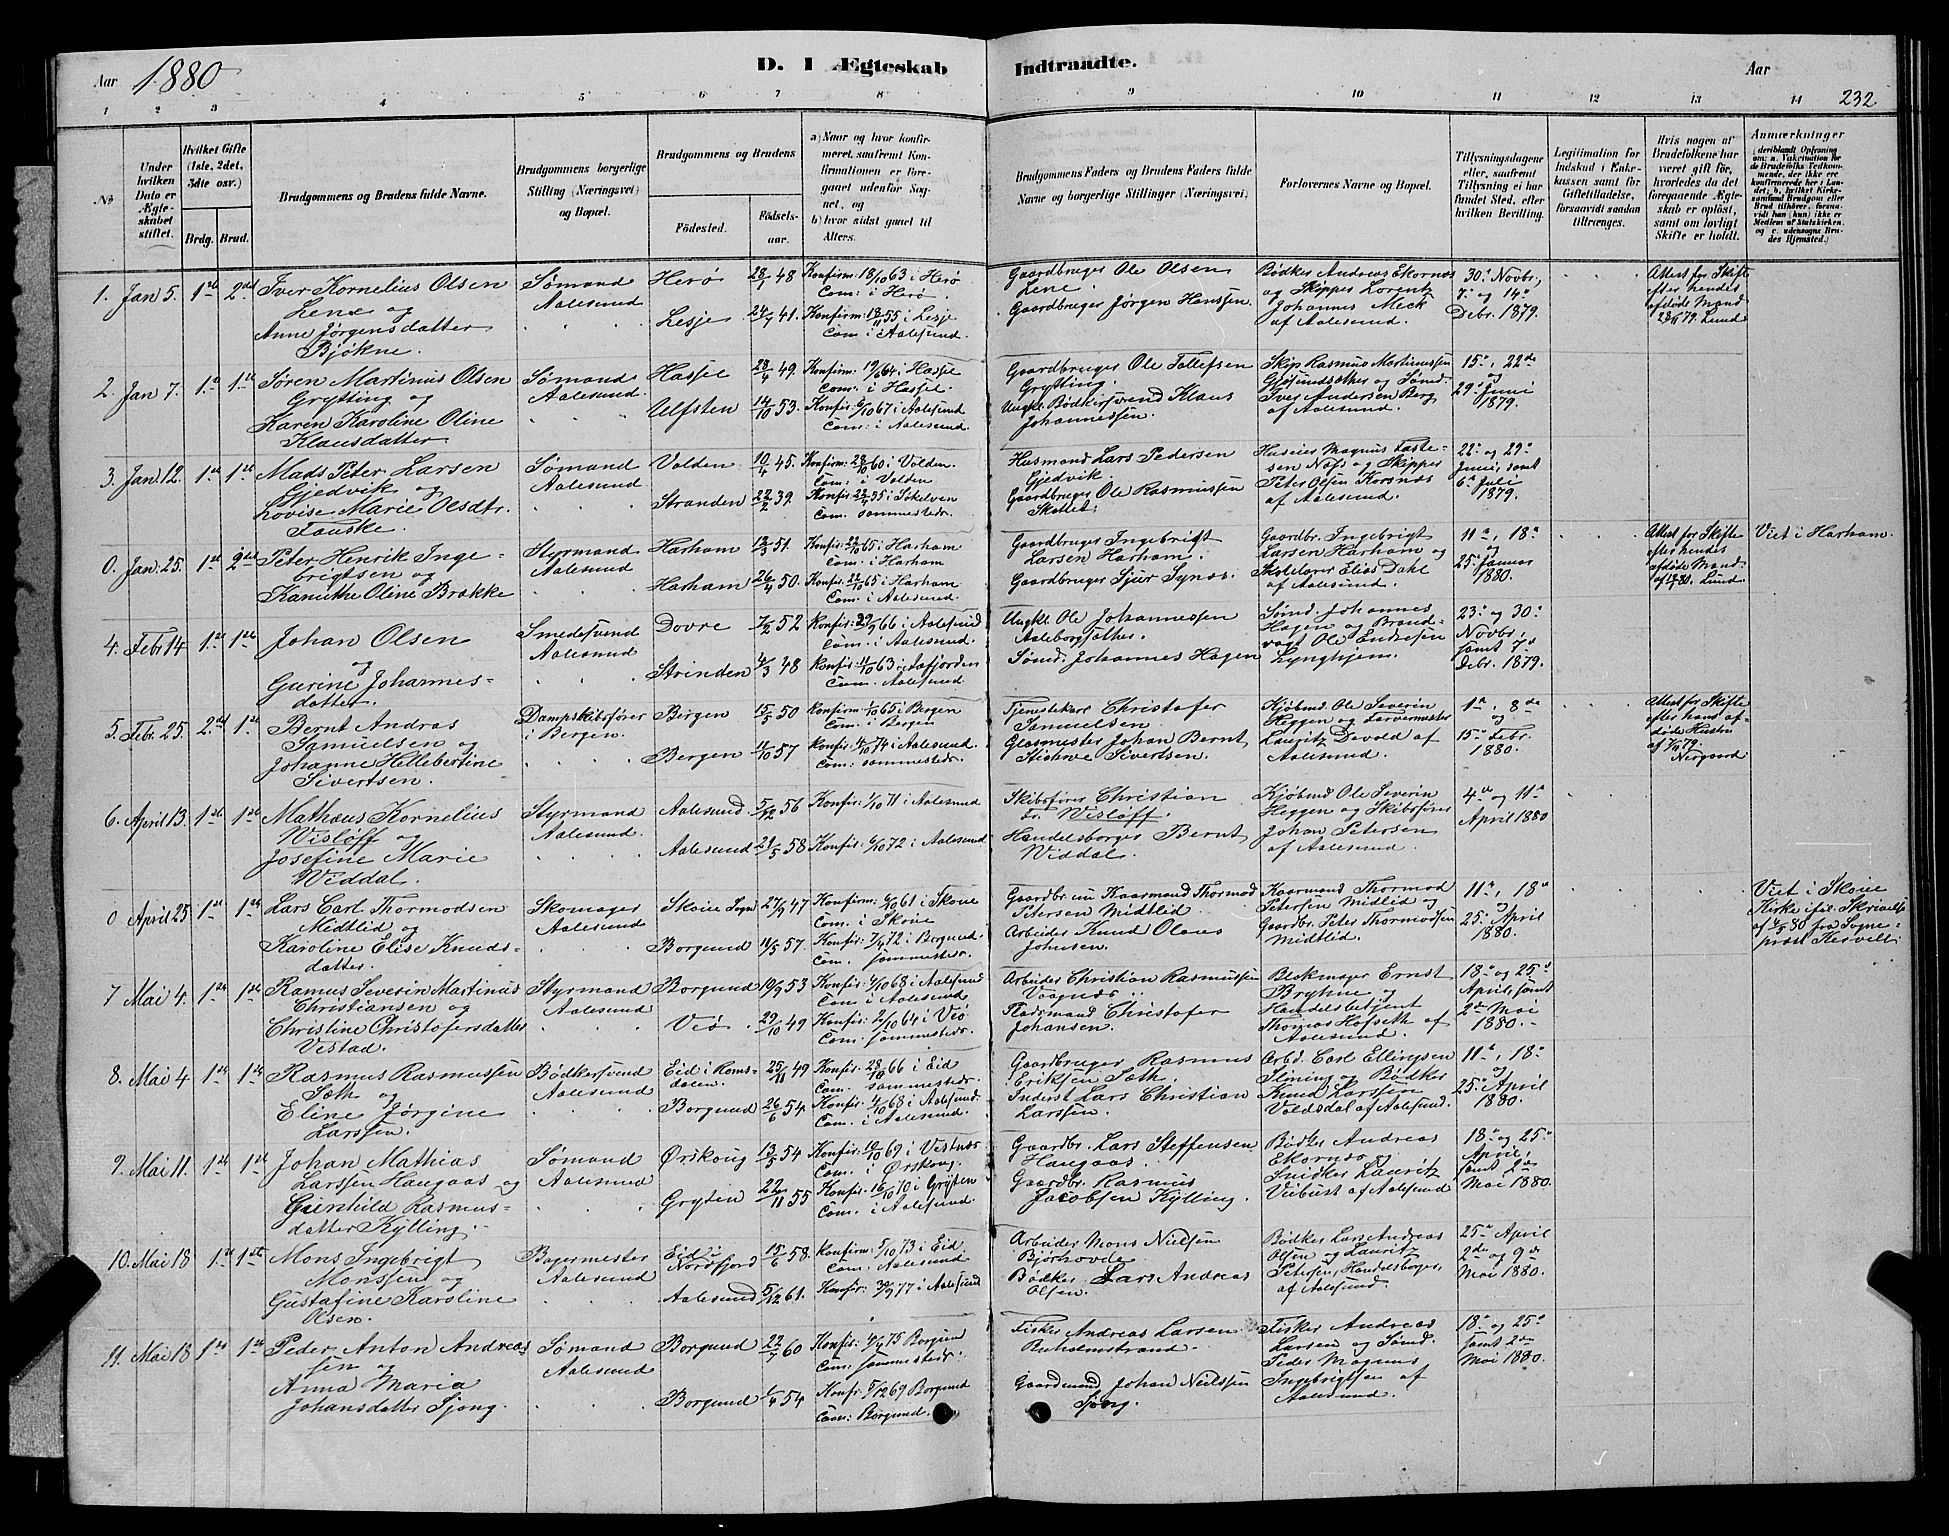 Aar 1880 D. I Ægteskab Indtraadte. Aar
1 2 3 4 5 6 7 8 9 10 11 12 13 14 232
No
Under hvilken Dato er Ægteskabet stiftet.
Hvilket Gifte (1ste, 2det, 3die osv.)
Brdg. Brud.
Brudgommens og Brudens fulde Navne.
Brudgommens borgerlige Stilling (Næringsvei) og Bopæl.
Brudgommens og Brudens
Fødested. Fødselsaar.
a) Naar og hvor konfirmeret, saafremt Konfirmationen er foregaaet udenfor Sognet, og
b) hvor sidst gaaet til Alters.
Brudgommens Faders og Brudens Faders fulde Navne og borgerlige Stillinger (Næringsvei)
Forlovernes Navne og Bopæl.
Tillysningsdagene eller, saafremt Tillysning ei har fundet Sted, efter hvilken Bevilling.
Legitimation for Indskud i Enkekassen samt for Giftetilladelse, forsaavidt saadan tiltrænges.
Hvis nogen af Brudefolkene har været gift før, hvorledes da det foregaaende Ægteskab er opløst, samt om lovligt Skifte er holdt.
Anmærkninger
1. Jan 5. 1ste 2det Iver Kornelius Olsen
Lene og
Anne Jørgensdatter
Bjøkne.
Sømand
Aalesund
Herø 28/1 48
Lesje 24/7 41.
Konfirm: 18/10 63 i Herø
Com: i Herø.
Konfirm: 18/11 55 i Lesje
Com: i Aalesund.
Gaardbruger Ole Olsen
Lene.
Gaardbruger Jørgen Hanssen.
Bødker Andreas Ekornæs
og Skipper Lorentz
Johannes Meck
af Aalesund.
30. Novbr,
7. og 14.
Debr. 1879.
Attest for Skifte
efter hendes
afdøde Mand
Lund
2. Jan 7. 1ste 1ste Søren Martinus Olsen
Grytting og
Karen Karoline Oline
Klausdatter
Sømand
Aalesund.
Hassel 28/4 49.
Ulfsten 14/10 53.
Konfirm: 19/6 64 i Hassel
Com: i Hassel.
Konfir: 6/10 67 i Aalesund
Com: i Aalesund.
Gaardbruger Ole Tollefsen
Grytting.
Ungkl. Bødkersvend Klaus
Johannessen.
Skip Rasmus Martinussen
Gjøsundsæther og Sømd.
Iver Andersen Berg
af Aalesund.
15., 22de
og
29. Juni
1879.
3. Jan 12. 1ste 1ste Mads Peter Larsen
Gjedvik og
Lovise Marie Olsdtr.
Fauske.
Sømand
Aalesund
Volden 10/4 45.
Stranden 22/2 39.
Konfirm: 28/10 60 i Volden.
Com: i Volden
Konfir: 22/4 55 i Sikelven
Com. sammesteds.
Husmand Lars Pedersen
Gjedvik
Gaardbruger Ole Rasmussen
Huseier Magnus
Næss og Skipper
Peter Olsen Korsnæs
af Aalesund.
22. og 29.
Juni, samt
6. Juli
1879.
0. Jan. 25. 1ste 2det Peter Henrik Inge-
brigtsen og
Kanuthe Oline Brække
Styrmand
Aalesund
Harham 12/3 51.
Harham 26/4 50.
Konfir: 22/10 65 i Harham
Com: i Harham
Konfir: 22/10 65 i Harham
Com: i Aalesund.
Gaardbruger Ingebrigt
Larsen Harham.
Gaardbruger Sjur Synæs.
Gaardbr. Ingebrigt
Larsen Harham og
Skolelærer Elias Dahl
af Aalesund.
11te, 18.
og
25. Januar
1880.
Attest for Skifte
efter hendes
afdøde Mand
Lund
Viet i Harham.
4. Febr 14. 1ste 1ste Johan Olsen
og
Gurine Johannes-
datter
Smedesvend
Aalesund
Dovre 7/2 52
Strinden 4/3 48
Konfir: 29/9 66 i Aalesund
Com: i Aalesund.
Konfir: 4/10 63 i Aafjorden
Com. Aalesund.
Ungkl. Ole Johannessen
Aaleborgsæther.
Sømd. Johannes Hagen
Sømd. Johannes
Hagen og Brand-
vagt Ole Endresen
Lynghjem.
23. og 30.
Novbr,
samt 7.
Debr. 1879.
5. Febr. 25. 2det 1ste Bernt Andreas
Samuelsen og
Johanne Hellebertine
Sivertsen.
Dampskibsfører
i Bergen.
Bergen 15/5 50
Bergen 11/10 57
Konfirm: 1/10 65 i Bergen
Com: i Bergen
Konfir: 4/10 74 i Aalesund.
Com: sammesteds.
Tjenestekarl Christofer
Samuelsen.
Glasmester Johan Bernt
Sivertsen.
Kjøbmd. Ole Severin
Heggen og Farvermester
Lauritz Devold af
Aalesund.
1ste, 8de
og
15. Febr.
1880.
Attest for Skifte
efter hans af-
døde Hustru
Nergaard
6. April 13. 1ste 1ste Mathæus Kornelius
Wisløff og
Josefine Marie
Widdal.
Styrmand
Aalesund
Aalesund 5/12 56
Aalesund 21/5 58
Konfir: 1/10 71 i Aalesund
Konfir: 6/10 72 i Aalesund
Skibsfører Christian
Fr. Wisløff.
Handelsborger Bernt
Widdal.
Kjøbmd Ole Severin
Heggen og Skibsfører
Johan Petersen
af Aalesund.
4de og 11te
April 1880
0 April 25 1ste 1ste Lars Carl Thormodsen
Midtlid og
Karoline Elise Knuds-
datter.
Skomager
Aalesund
Skoue Sogn 27/9 47
Borgund 11/5 57.
Konfirm: 6/10 61 i Skoue
Com. i Skoue
Konfir: 7/7 72 i Borgund.
Com. sammesteds.
Gaardbr. nu Kaarmand Thormod
Petersen Midtlid.
Arbeider Knud Olaus
Johnsen.
Kaarmand Thormod
Petersen Midlid og
Gaardbr. Peter Thormodsen
Midtlid.
11te, 18de
og
25. April
1880.
Viet i Skoue
Kirke iføl. Skrivelse
af 10/5 80 fra Sogne-
præst
7 Mai 4. 1ste 1ste Ramus Severin Martinus
Christiansen og
Christine Christofersdatter
Vestad.
Styrmand
Aalesund
Borgund 19/9 53
Veø 29/10 49
Konfir: 4/10 68 i Aalesund
Com: i Aalesund.
Konfir: 2/10 64 i Veø
Com. sammesteds.
Arbeider Christian Rasmussen
Vaagnæs.
Christofer
Johansen.
Blokmager Ernst
Bryhne og
Handelsbetjent
Thomas Hofseth af
Aalesund.
18. og 25.
April, samt
2de Mai
1880.
8. Mai 4 1ste 1ste Rasmus Rasmussen
Sæth og
Eline Jørgine
Larssen.
Bødkersvend
Aalesund
Eid i Roms-
dalen 25/11 49
Borgund 26/6 54.
Konfir: 28/10 66 i Eid
Com. sammesteds.
Konfir: 4/10 68 i Aalesund.
Com: i Aalesund.
Gaardbruger Rasmus
Eriksen Sæth.
Inderst Lars Christian
Larssen.
Arbd. Carl Ellingsen
Slining og Bødker
Knud Larssen
Voldsdal af Aalesund.
11te, 18.
og
25. April
1880.
9. Mai 11. 1ste 1ste Johan Mathias
Larssen Haugaas og
Gunhild Rasmus-
datter Kylling.
Sømand
Aalesund
Ørskoug 13/5 54
Gryten 22/11 55
Konfir: 10/10 69 i Vestnæs
Com: i Ørskoug.
Konfir: 16/10 70 i Gryten
Com: i Aalesund.
Gaardbr. Lars Steffensen
Haugaas.
Gaardbr. Rasmus
Jacobsen Kylling.
Bødker Andreas
Ekornæs og
Snidker Lauritz
Viebust af Aalesund
18. og 25.
April,
samt 2de
Mai 1880.
10. Mai 18 1ste 1ste Mons Ingebrigt
Monssen og
Gustafine Karoline
Olsen.
Bagermester
Aalesund
Eid i
Nordfjord 15/6 58.
Aalesund 5/12 61.
Konfirm: 5/10 73 i Eid
Com: Aalesund
Konfir: 30/9 77 i Aalesund
Arbeider Mons Nielsen
Bjørhovde
Bødker Lars Andreas
Olsen.
Bødker Lars Andreas
Olsen og Lauritz
Petersen, Handelsborger,
af Aalesund
25. April
2de og 9de
Mai 1880.
11. Mai 18 1ste 1ste Peder Anton Andreas-
sen og
Anna Maria
Johansdatter Sjong.
Sømand
Aalesund
Borgund 22/7 60
Borgund 1/4 54
Konfir: 4/7 75 Borgund
Com: sammesteds.
Konfir: 5/12 69 Borgund
Com: Borgund.
Fisker Andreas Larsen
Buholmstrand.
Gaardmand Johan Neilssen
Sjong.
Fisker Andreas
Larsen og Sømd.
Peder Magnus
Ingebrigtsen af
Aalesund.
18. og 25.
samt 2de
Mai 1880.